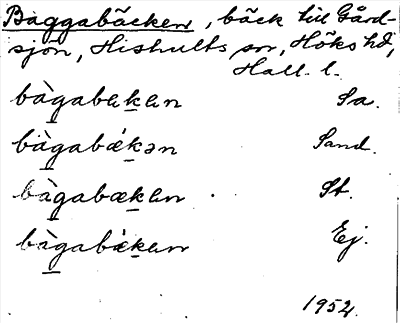 Baggabäcken, bäck till Gård-
sjön, Hishults sn, Höks hd,
Hall. l.
bàgabækæn Sa.
bàgabǽkən Sand.
bàgabækæn St.
bàgabǽkæn Ej.
1952.